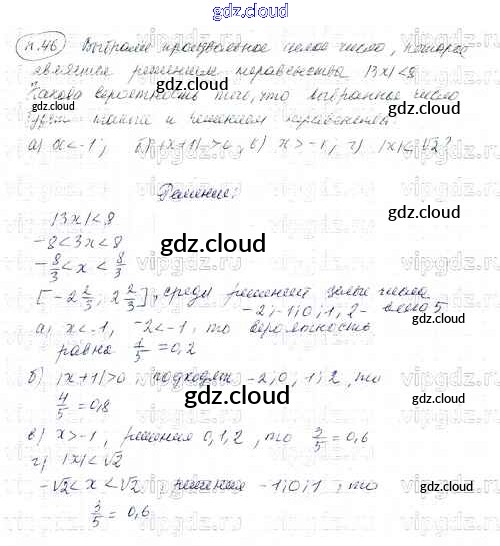 gdz.cloud
п.46 Выбрали произвольное целое число, которое
является решением неравенства |3x|<8
Какова вероятность того, что выбранное число
будет также и решением неравенства:
а) x<-1; б) |x+1|>0; в) x>-1; г) |x|<√2?
gdz.cloud
Решение:
|3x|<8
-8<3x<8
gdz.cloud
-8/3<x<8/3
[-2 2/3; 2 2/3], среди решений целые числа
-2; -1; 0; 1; 2 - всего 5
а) x<-1, -2<-1, то вероятность
gdz.cloud
равна 1/5 = 0,2
б) |x+1|>0, подходят -2; 0; 1; 2, то
4/5 = 0,8
gdz.cloud
в) x>-1, решения 0, 1, 2, то 3/5 = 0,6
г) |x|<√2
-√2<x<√2, решения -1; 0; 1, то
gdz.cloud
3/5 = 0,6
gdz.cloud